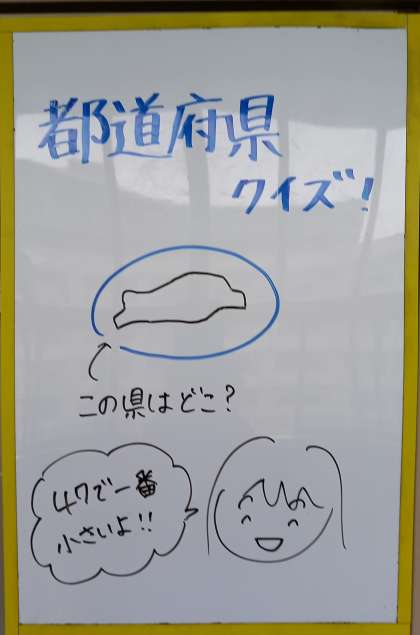 都道府県
クイズ!
この県はどこ?
47で一番
小さいよ!!